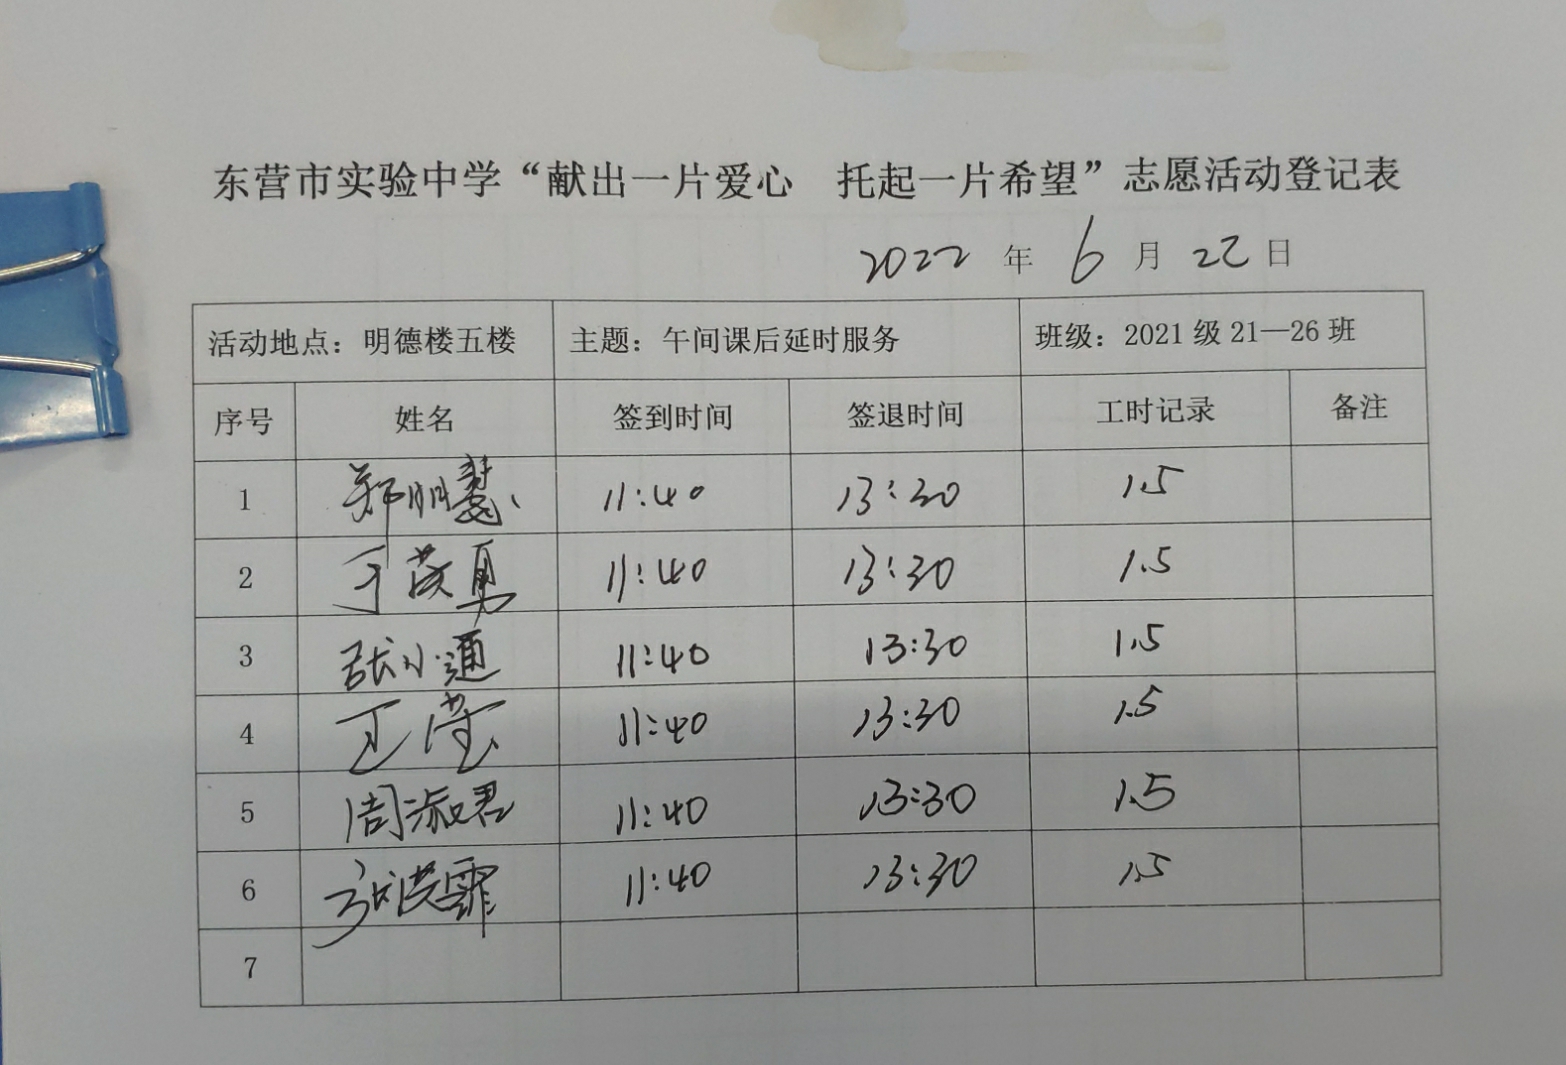 东营市实验中学“献出一片爱心 托起一片希望”志愿活动登记表
2022 年 6 月 22 日
活动地点：明德楼五楼 主题：午间课后延时服务 班级：2021 级 21—26 班
序号 姓名 签到时间 签退时间 工时记录 备注
1 郑明慧 11:40 13:30 1.5
2 11:40 13:30 1.5
3 张小通 11:40 13:30 1.5
4 王莹 11:40 13:30 1.5
5 周淑君 11:40 13:30 1.5
6 11:40 13:30 1.5
7